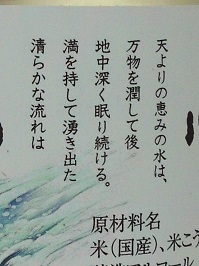 天よりの恵みの水は、
万物を潤して後
地中深く眠り続ける。
満を持して湧き出た
清らかな流れは
原材料名
米(国産)、米こう